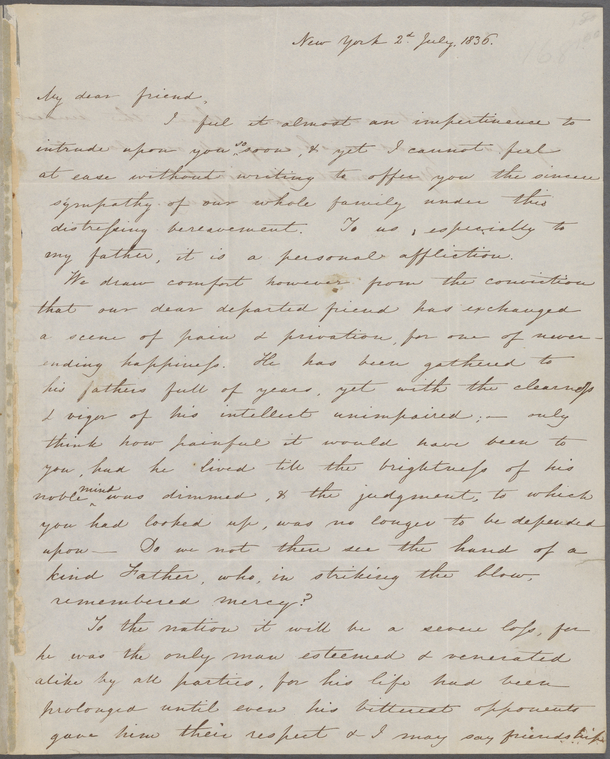 New York 2d July, 1836.
My dear friend,
I feel it almost an impertinence to
intrude upon you so soon, & yet I cannot feel
at ease without writing to offer you the sincere
sympathy of our whole family under this
distressing bereavement. To us, especially to
my father, it is a personal affliction.
We draw comfort however from the conviction
that our dear departed friend has exchanged
a scene of pain & privation, for one of never-
ending happiness. He has been gathered to
his fathers full of years, yet with the clearness
& vigor of his intellect unimpaired; — only
think how painful it would have been to
you, had he lived till the brightness of his
noble mind was dimmed, & the judgment, to which
you had looked up, was no longer to be depended
upon — Do we not then see the hand of a
kind Father, who, in striking the blow,
remembered mercy?
To the nation it will be a severe loss, for
he was the only man esteemed & venerated
alike by all parties, for his life had been
prolonged until even his bitterest opponents
gave him their respect & I may say friendship